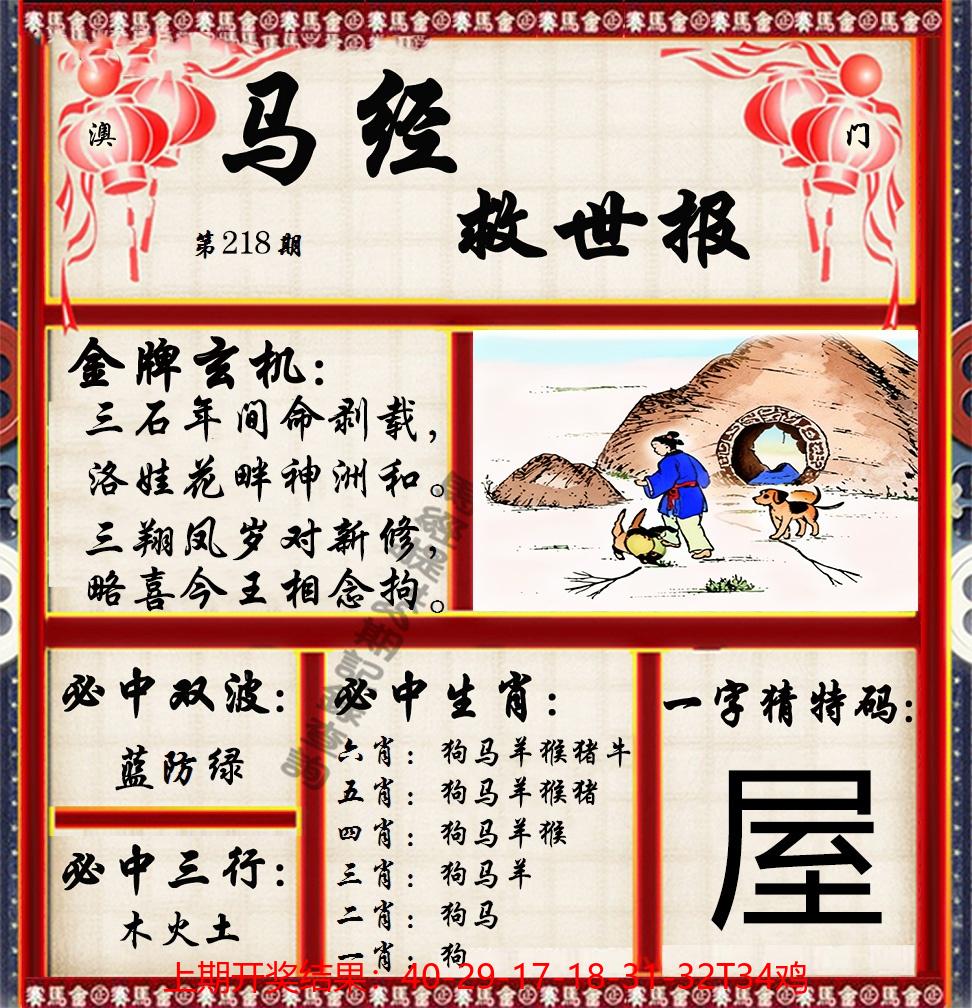 澳
门
马经
救世报
第218期
金牌玄机：
三石年间命剥载，
洛娃花畔神洲和。
三翔凤岁对新修，
略喜今王相念拘。
必中双波：
蓝防绿
必中三行：
木火土
必中生肖：
六肖：狗马羊猴猪牛
五肖：狗马羊猴猪
四肖：狗马羊猴
三肖：狗马羊
二肖：狗马
一肖：狗
一字猜特码：
屋
上期开奖结果：40-29-17-18-31-32T34鸡